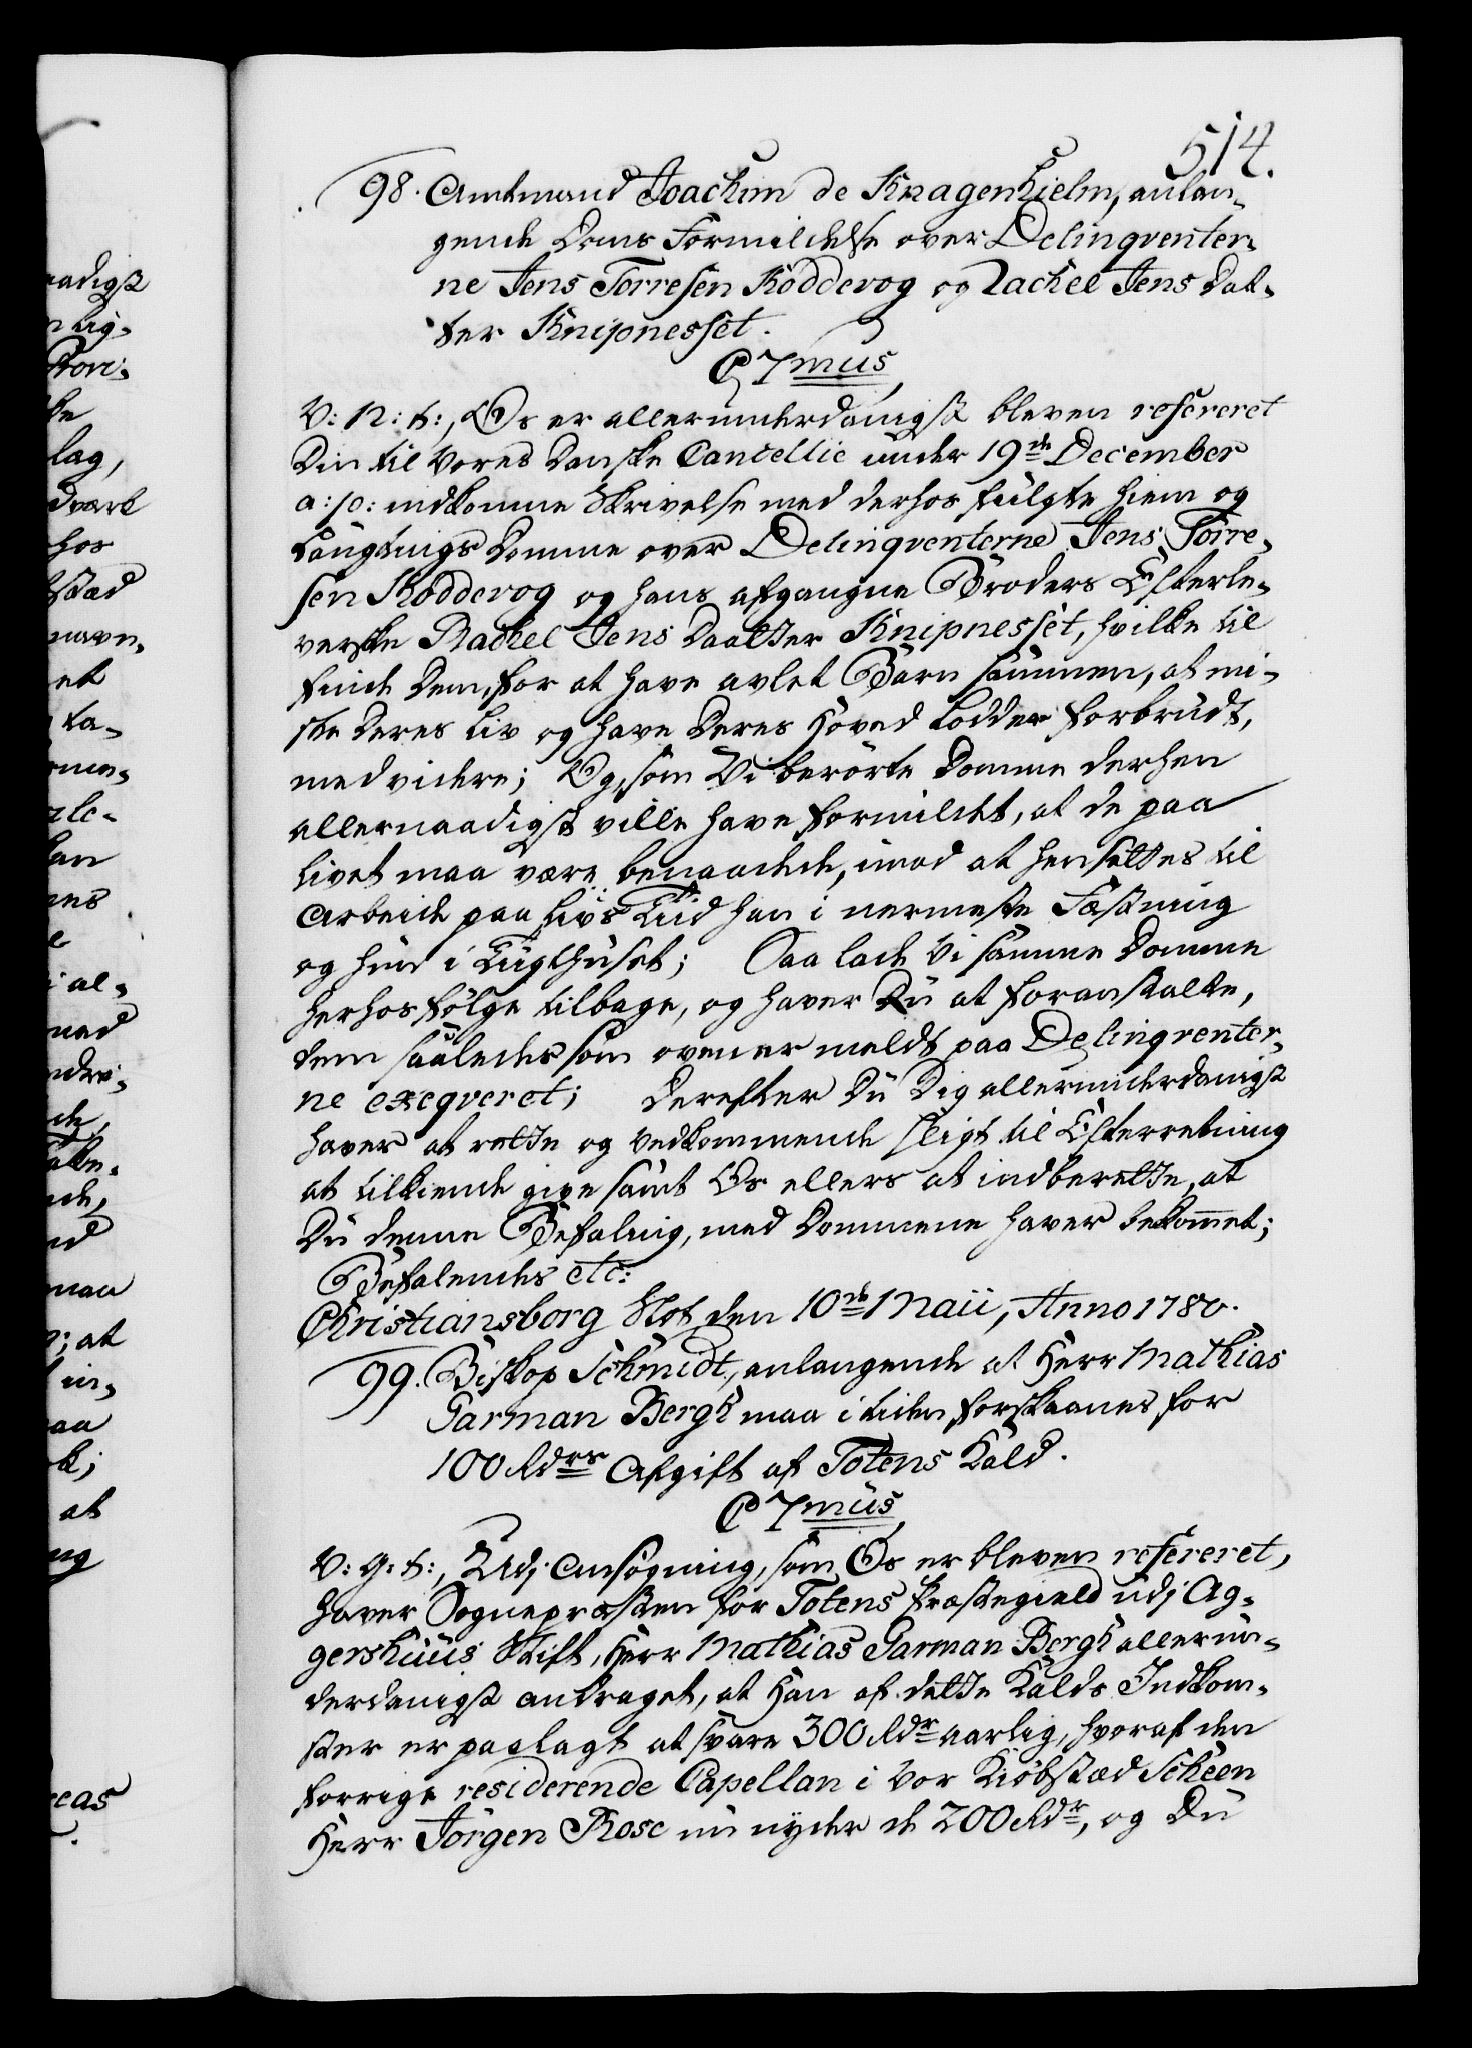 514.
98. Amtmand Joachim de Knagenhielm, anlan-
gende Doms Formildelse over Delinqventer-
ne Jens Torresen Kodderog og Rachel Jens Dat-
ter Knipnesset.
C 7mus,
V: N: t:, Os er allerunderdanigst bleven refereret
Din til Vores Danske Cancellie under 19de December
a: p: indkomne Skrivelse med derhos fulgte Hiem og
Laugtings Domme over Delinqventerne Jens Torre-
sen Kodderog og hans afgangne Broders Efterle-
verske Rachel Jens Daatter Knipnesset, hvilke til
finde Dem, for at have avlet Barn sammen, at mi-
ste Deres Liv og have Deres Hoved Lodder forbrudt,
med videre; Og, som Vi berørte Domme derhen
allernaadigst ville have formildet, at de paa
Livet maa være benaadede, imod at hensættes til
Arbeide paa Livs Tiid han i nermeste Fæstning
og hun i Tugthuset; Saa lade Vi samme Domme
herhos følge tilbage, og haver Du at foranstalte,
dem saaledes som ovener meldt paa Delinqventer-
ne exeqveret; Derefter Du Dig allerunderdanigst
haver at rette og Vedkommende sligt til Efterretning
at tilkiende give samt Os ellers at indberette, at
Du denne Befaling, med Dommene haver bekommet;
Befalendes etc:
Christiansborg Slot den 10de Maii, Anno 1780.
99. Biskop Schmidt, anlangende at Herr Mathias
Garman Bergh maa i tiden forskaanes for
100 Rdrs Afgift af Totens Kald.
C 7mus,
V: G: t:, Udj Ansøgning, som Os er bleven refereret,
haver Sognepræsten for Totens Præstegield udj Ag-
gershuus Stift, Herr Mathias Garman Bergh allerun-
derdanigst andraget, at Han af dette Kalds Indkom-
ster er paalagt at svare 300 Rdr aarlig, hvoraf den
forrige residerende Capellan i Vor Kiøbstæd Scheen
Herr Jørgen Rose nu nyder de 200 Rdr, og Du